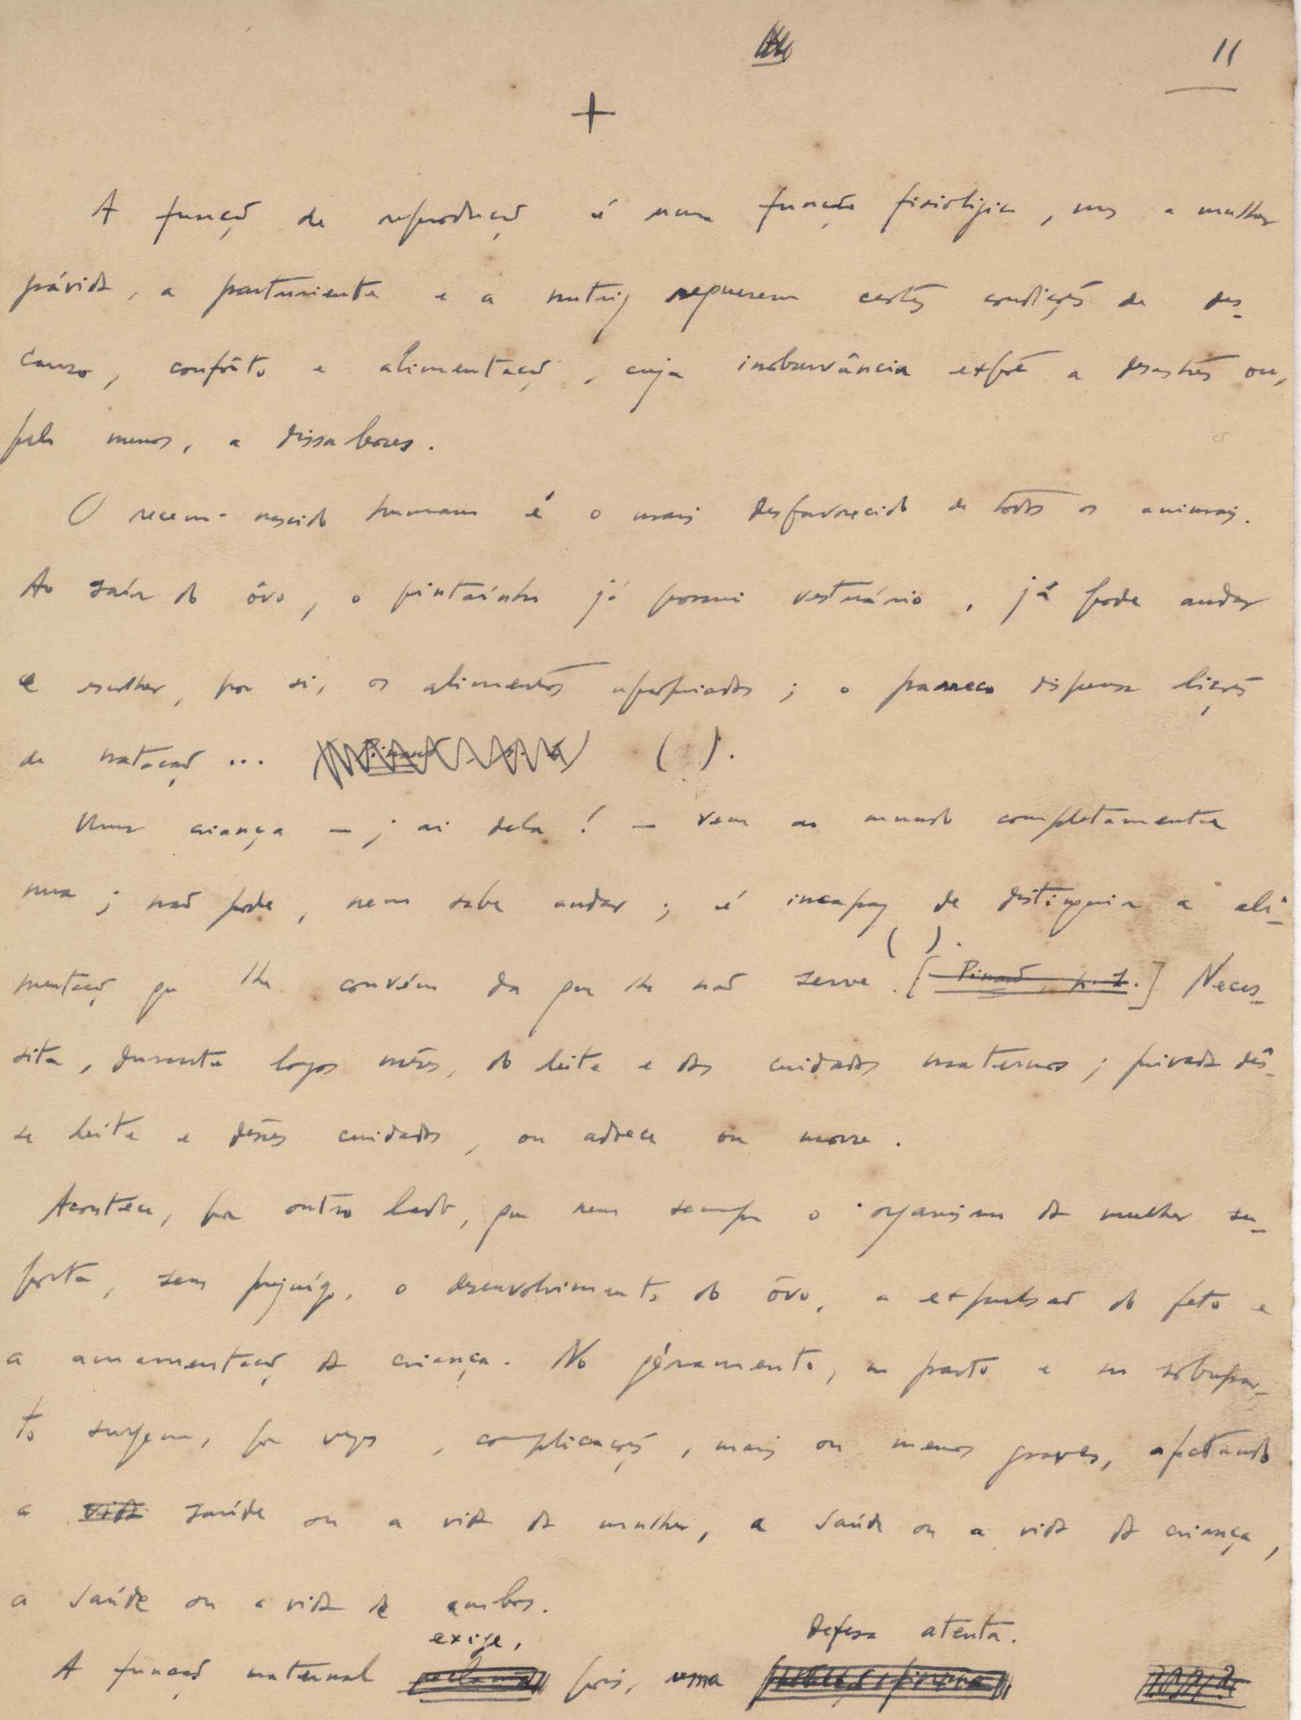 11
+
A função de reprodução é uma função fisiológica, mas a mulher
grávida, a parturiente e a nutriz requerem certas condições de des-
canso, confôrto e alimentação, cuja inobservância expõe a desastres ou,
pelo menos, a dissabores.
O recem-nascido humano é o mais desfavorecido de todos os animais.
Ao saír do ôvo, o pintaínho já possui vestuário, já pode andar
e escolher, por si, os alimentos apropriados; o parreco dispensa lições
de natação... ( ).
Uma criança — ¡ ai dela! — vem ao mundo completamente
nua; não pode, nem sabe andar; é incapaz de distinguir a ali-
( ).
mentação que lhe convém da que lhe não serve. [Pinard, p. 1.] Neces-
sita, durante logos mêses, do leite e dos cuidados maternos; privada dês-
se leite e dêsses cuidados, ou adoece ou morre.
Acontece, por outro lado, que nem sempre o organismo da mulher su-
porta, sem prejuízo, o desenvolvimento do ôvo, a expulsão do feto e
a amamentação da criança. No géramento, no parto e no sobrepar-
to surgem, por vezes, complicações, mais ou menos graves, afectando
a vida saúde ou a vida da mulher, a saúde ou a vida da criança,
a saúde ou a vida de ambos.
exige, defesa atenta.
A função maternal reclama pois, uma